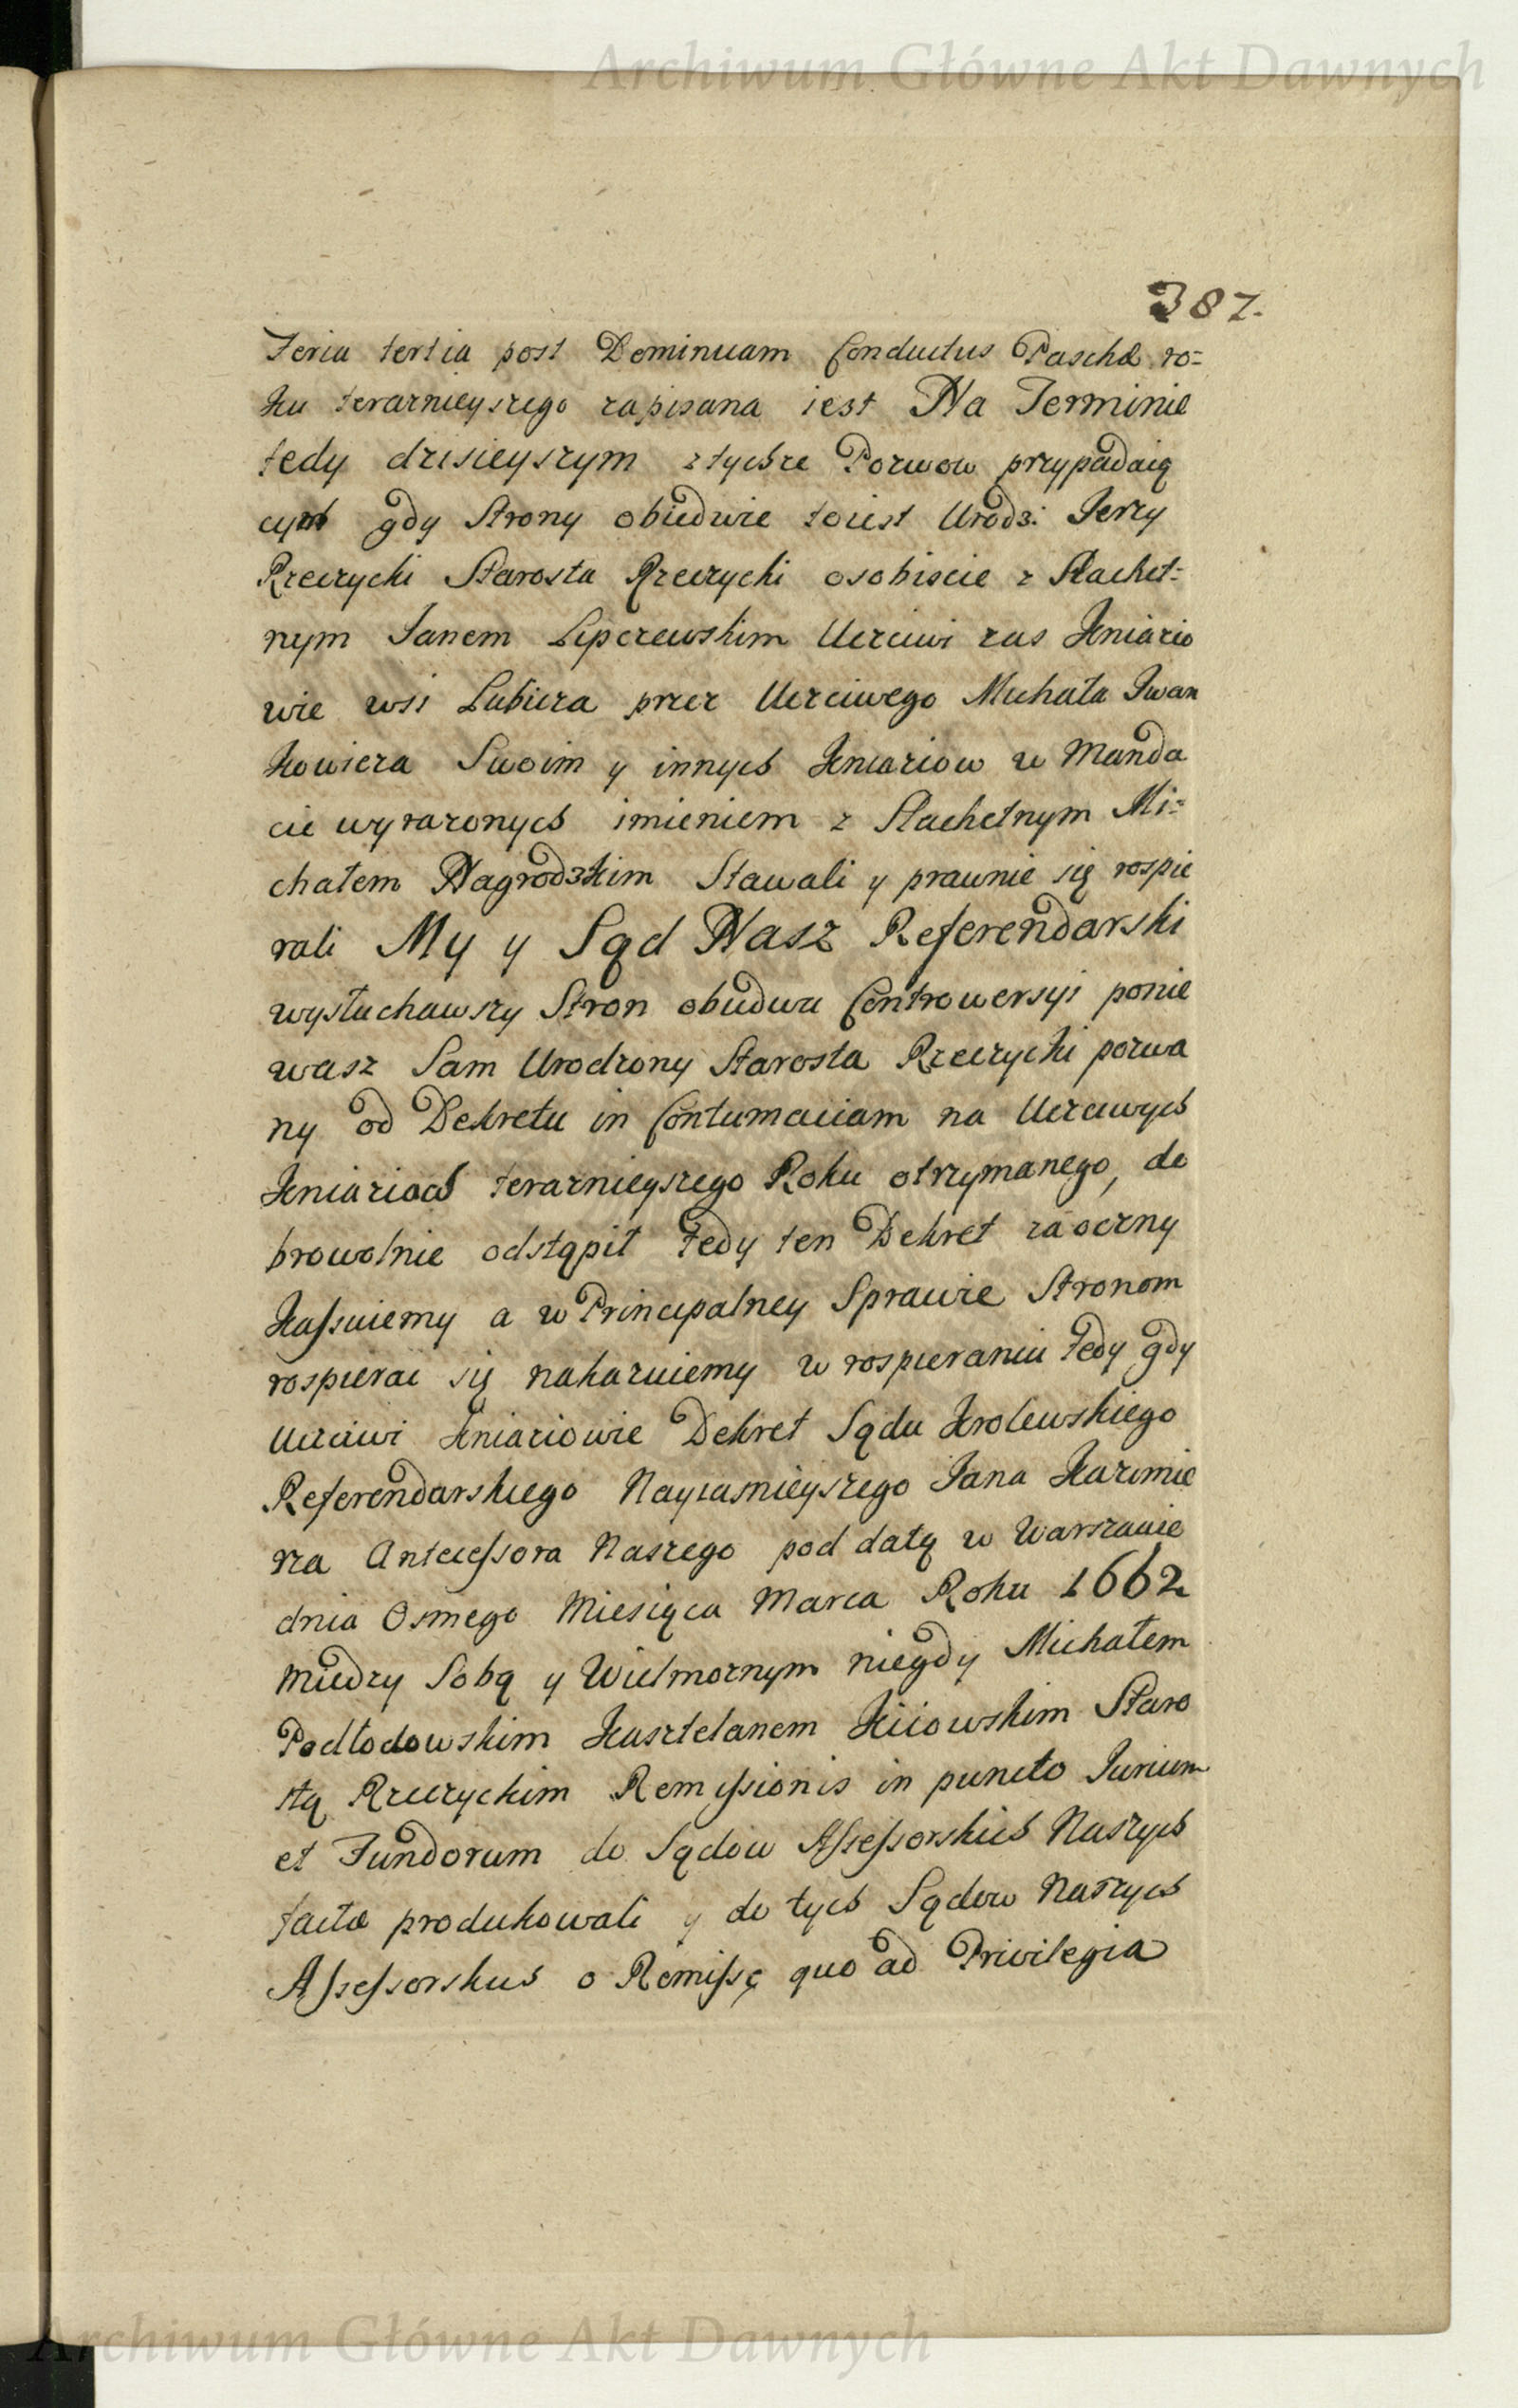 Archiwum Główne Akt Dawnych
387.
Feria tertia post Dominicam Conductus Paschæ ro=
ku teraznieyszego zapisana iest Na Terminie
tedy dzisieyszym z tychze Pozwow przypadaią
cym gdy Strony obiedwie toiest Urodz: Jerzy
Rzeczycki Starosta Rzeczycki osobiscie z Slachet=
nym Janem Lipczewskim Uczciwi zas Kmiecio
wie wsi Lubicza przez Uczciwego Michała Iwan
kowicza Swoim y innych Kmieciow w Manda
cie wyrazonych imieniem z Slachetnym Mi=
chałem Nagrodzkim Stawali y prawnie się rospie
rali My y Sąd Nasz Referendarski
wysłuchawszy Stron obudwu Controwersyi ponie
wasz Sam Urodzony Starosta Rzeczycki pozwa
ny od Dekretu in Contumaciam na Uczciwych
Kmieciach teraznieyszego Roku otrzymanego, do
browolnie odstąpił tedy ten Dekret zaoczny
Kassuiemy a w Principalney Sprawie Stronom
rospierac się nakazuiemy w rospieraniu tedy gdy
Uczciwi Kmieciowie Dekret Sądu Krolewskiego
Referendarskiego Nayiasnieyszego Jana Kazimie
rza Antecessora Naszego pod datą w Warszawie
dnia Osmego Miesiąca Marca Roku 1662
miedzy Sobą y Wielmoznym niegdy Michałem
Podlodowskim Kasztelanem Kiiowskim Staro
stą Rzeczyckim Remissionis in puncto Jurium
et Fundorum do Sądow Assessorskich Naszych
factæ produkowali y do tych Sądow Naszych
Assessorskich o Remissę quo ad Privilegia
Archiwum Główne Akt Dawnych